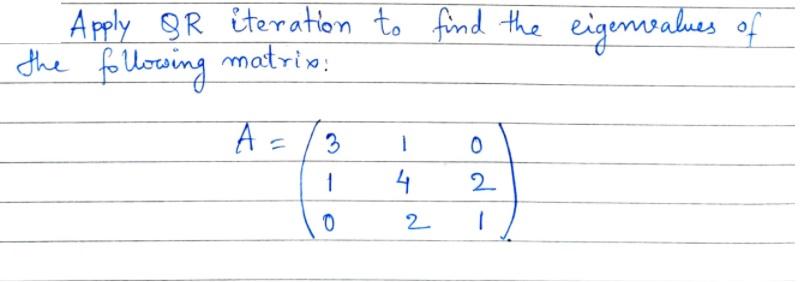 Apply QR iteration to find the eigenvalues of
the following matrix:
A = ( 3 1 0
1 4 2
0 2 1 ).